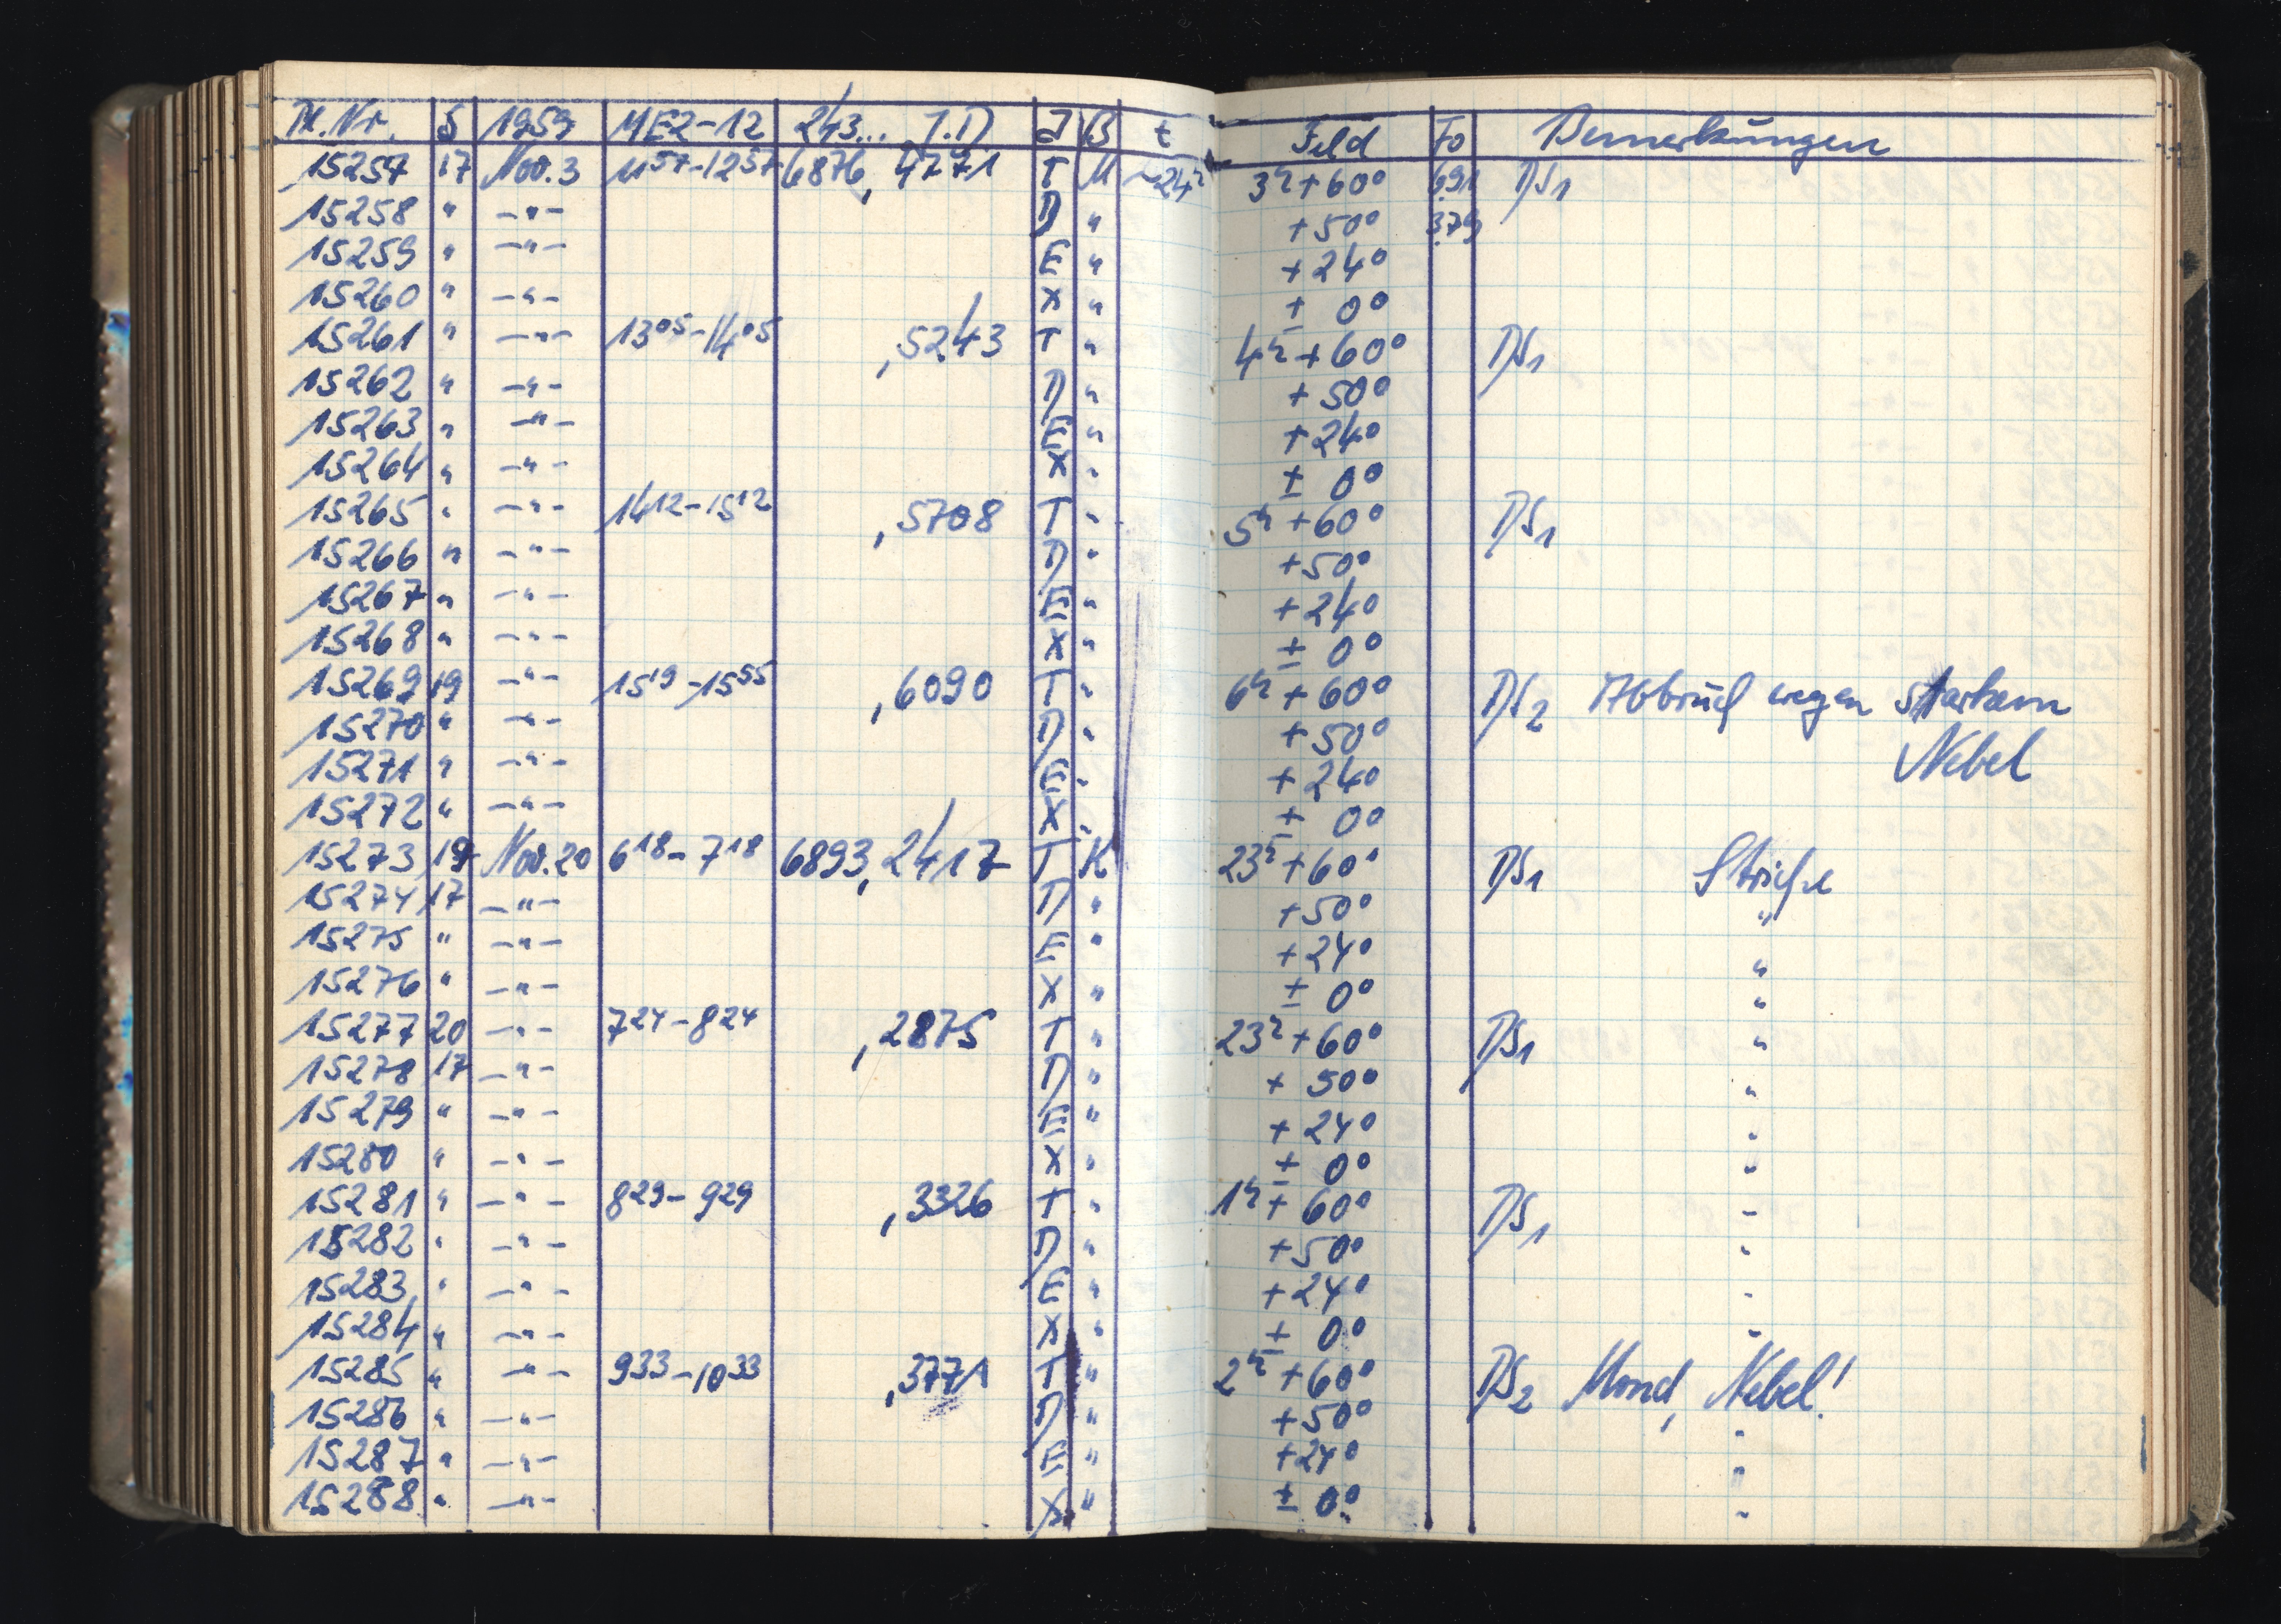 Pl.Nr. S 1959 MEZ-12 243... J.D J B t Feld Fo Bemerkungen
15257 17 Nov.3 11 57-12 57 6876, 4771 T M ~24h 3h+60° 691 DS1
15258 " -"- D " +50° 379
15259 " -"- E " +24°
15260 " -"- X " ± 0°
15261 " -"- 13 05-14 05 ,5243 T " 4h+60° DS1
15262 " -"- D " +50°
15263 " -"- E " +24°
15264 " -"- X " ± 0°
15265 " -"- 14 12-15 12 ,5708 T " 5h+60° DS1
15266 " -"- D " +50°
15267 " -"- E " +24°
15268 " -"- X " ± 0°
15269 19 -"- 15 19-15 55 ,6090 T " 6h+60° DS2 Abbruch wegen starkem
15270 " -"- D " +50° Nebel
15271 " -"- E " +24°
15272 " -"- X " ± 0°
15273 19 Nov.20 6 18-7 18 6893,2417 T K 23h+60° DS1 Striche
15274 17 -"- D " +50° "
15275 " -"- E " +24° "
15276 " -"- X " ± 0° "
15277 20 -"- 7 24-8 24 ,2875 T " 23h+60° DS1 "
15278 17 -"- D " +50° "
15279 " -"- E " +24° "
15280 " -"- X " ± 0° "
15281 " -"- 8 29-9 29 ,3326 T " 1h+60° DS1 "
15282 " -"- D " +50° "
15283 " -"- E " +24° "
15284 " -"- X " ± 0° "
15285 " -"- 9 33-10 33 ,3771 T " 2h+60° DS2 Mond, Nebel!
15286 " -"- D " +50° "
15287 " -"- E " +24° "
15288 " -"- X " ± 0° "